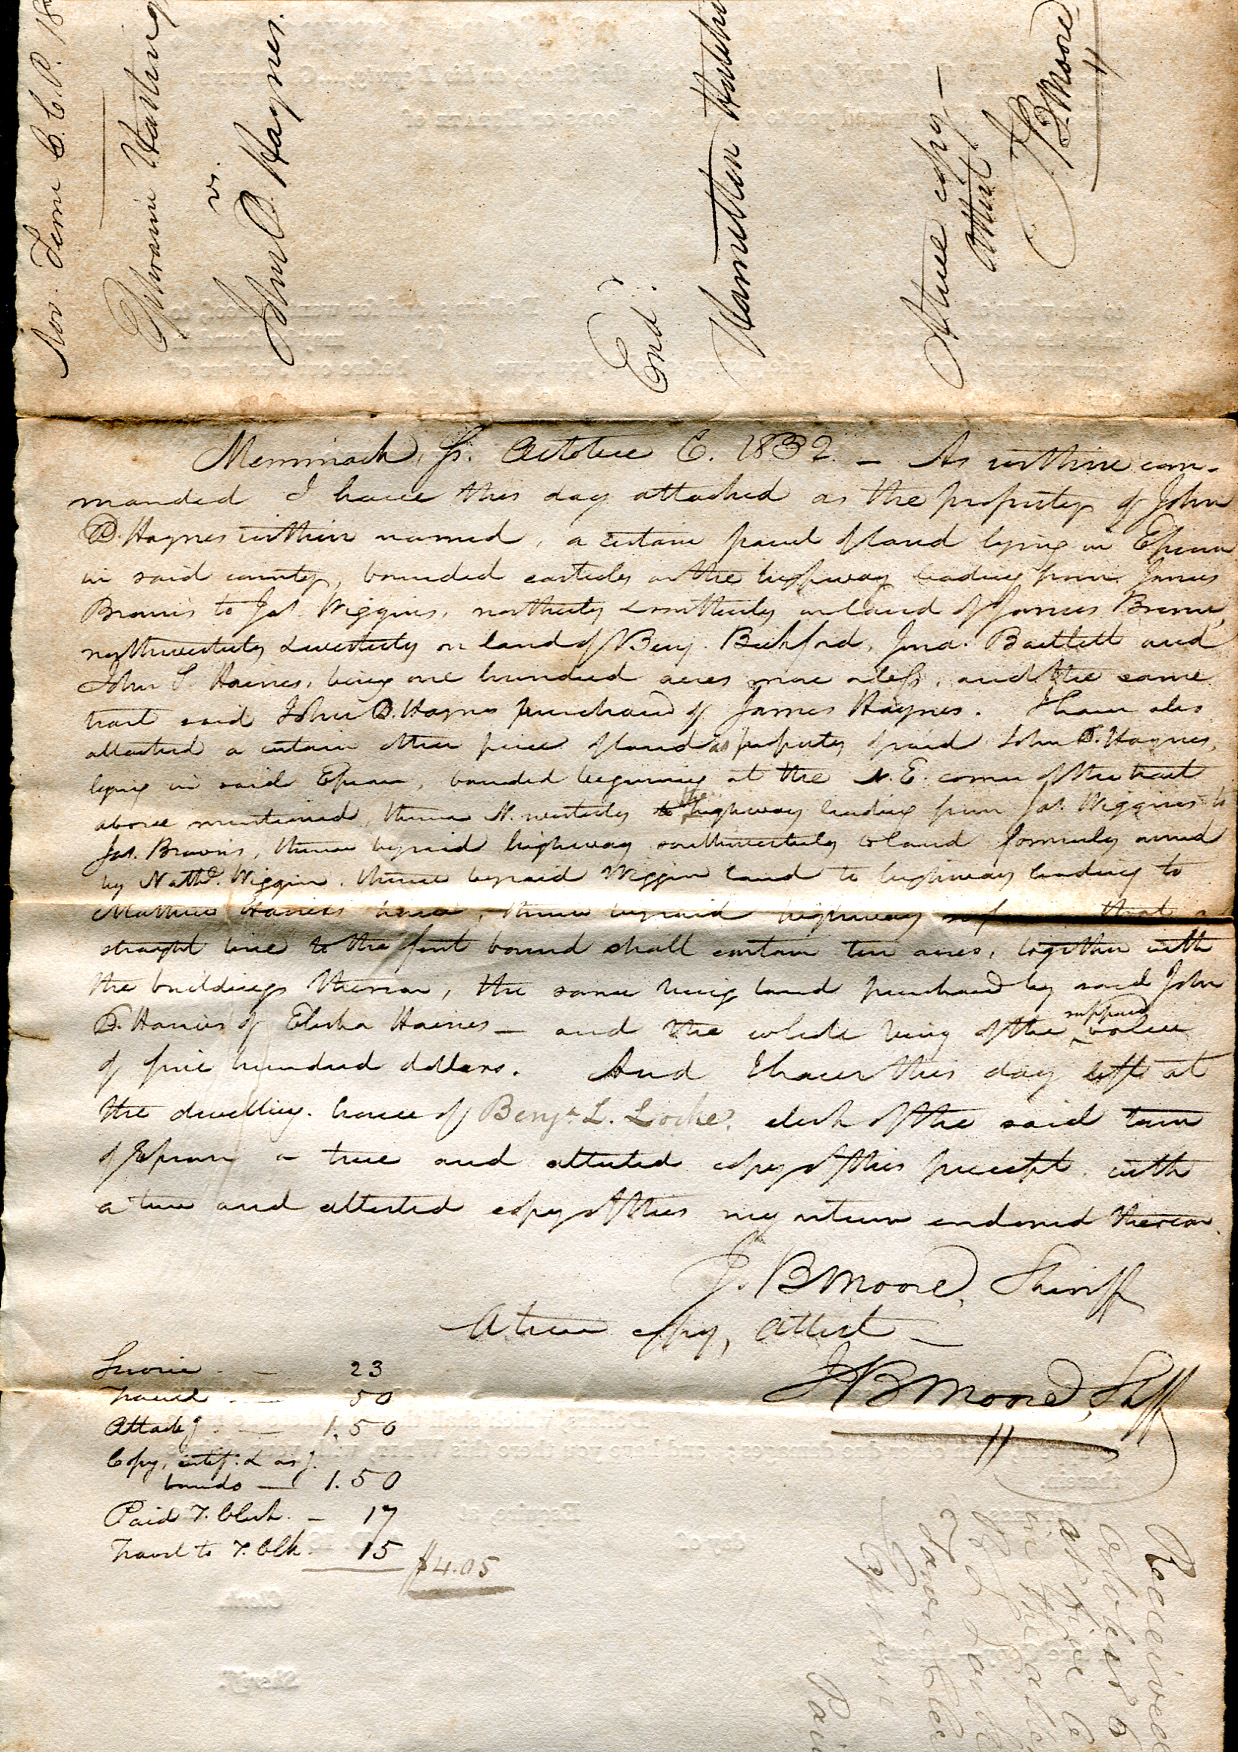 Nov. Term C. C. P. 18
Ephraim
vs.
John D. Haynes.
End.
Hamilton
A true copy —
Attest
J B Moore
Merrimack, Ss. October 6. 1832. — As within com-
manded I have this day attached as the property of John
D. Haynes within named, a certain parcel of land lying in Epsom
in said county, bounded easterly on the highway leading from James
Browns to Jas. Wiggins, northerly & southerly on land of James Brown,
northwesterly & westerly on land of Benj. Bickford, Jona. Bartlett and
John S. Haines, being one hundred acres more or less, and the same
tract said John D. Haynes purchased of James Haynes. I have also
attached a certain other piece of land as property of said John D. Haynes,
lying in said Epsom, bounded beginning at the N. E. corner of the tract
above mentioned, thence N. westerly to the highway leading from Jas. Wiggins to
Jas. Browns, thence by said highway southwesterly to land formerly owned
by Nathl. Wiggin, thence by said Wiggin land to highway leading to
Mathias Haines house, thence by said highway so that a
straight line to the first bound shall contain ten acres, together with
the buildings thereon, the same being land purchased by said John
D. Haines of Elisha Haines — and the whole being of the supposed value
of five hundred dollars. And I have this day left at
the dwelling house of Benja. L. Locke, clerk of the said town
of Epsom a true and attested copy of this precept, with
a true and attested copy of this my return endorsed thereon.
J. B Moore, Sheriff
A true copy, Attest —
J B Moore, Shff
Service — 23
Travel — 50
Attachg. — 1.50
Copy,
bounds — 1.50
Paid T. Clerk. — 17
Travel to T. Clk. 15 $4.05
Received
October 6
at five
on the